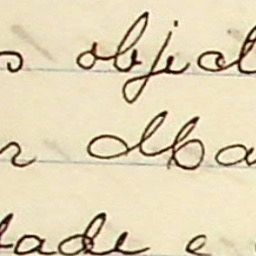 s object
r Ma
tade e